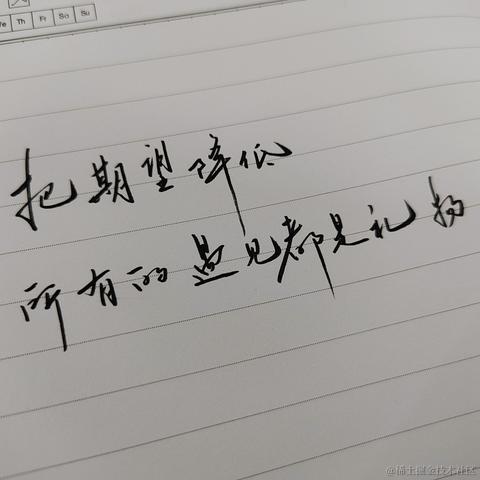 We Th Fr Sa Su
把期望降低
所有的遇见都是礼物
@稀土掘金技术社区